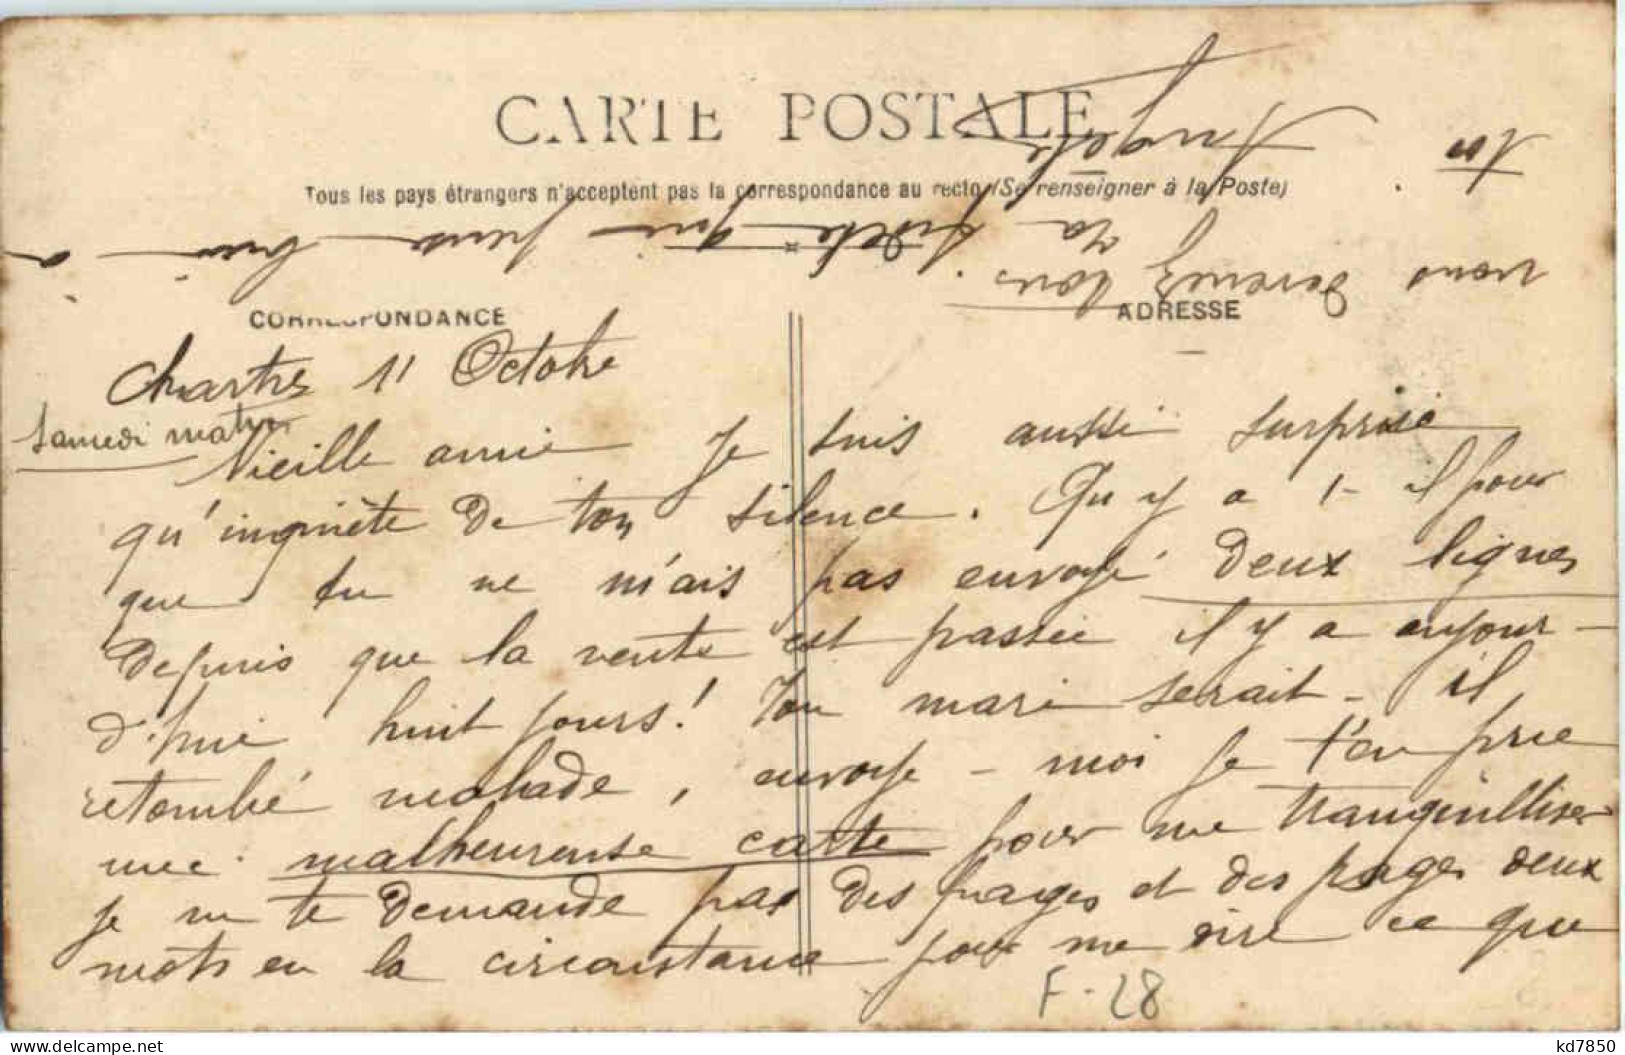 CARTE POSTALE
Tous les pays étrangers n'acceptent pas la correspondance au recto (Se renseigner à la Poste)
CORRESPONDANCE
ADRESSE
Chartres 11 Octobre
Samedi matin
Vieille amie Je suis aussi surprise
qu'inquiète de ton silence. Qu'y a t-il pour
que tu ne m'ais pas envoyé deux lignes
depuis que la vente est passée il y a aujour-
d'hui huit jours! Ton mari serait-il
retombé malade, envoye-moi je t'en prie
une malheureuse carte pour me tranquilliser
je ne te demande pas des pages et des pages deux
mots en la circonstance pour me dire ce que
vous devenez tous.
Ta fidèle qui pense bien à
toi
Angèle
F-28
kd7850